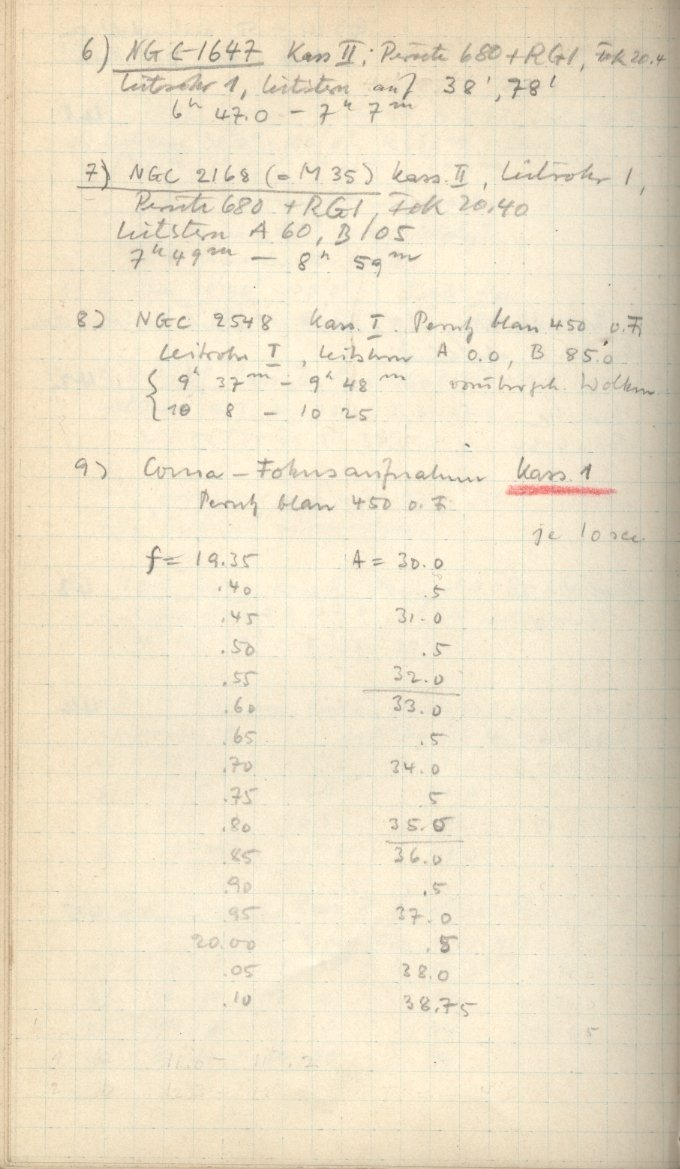 6) NGC 1647 Kass II; Perutz 680 + RG1, Fok 20.4
Leitrohr 1, Leitstern auf 38', 78'
6h 47.0 – 7h 7m
7) NGC 2168 (= M 35) Kass. II, Leitrohr 1,
Perutz 680 + RG1, Fok 20.40
Leitstern A 60, B 105
7h 49m – 8h 59m
8) NGC 2548 Kass. I. Perutz blau 450 o. F.
Leitrohr I, Leitstern A 0.0, B 85.0
9h 37m – 9h 48m vorübergeh. Wolken
10 8 – 10 25
9) Coma – Fokusaufnahme Kass. 1
Perutz blau 450 o. F.
je 10 sec.
f = 19.35 A = 30.0
.40 .5
.45 31.0
.50 .5
.55 32.0
.60 33.0
.65 .5
.70 34.0
.75 5
.80 35.0
.85 36.0
.90 .5
.95 37.0
20.00 .5
.05 38.0
.10 38.75